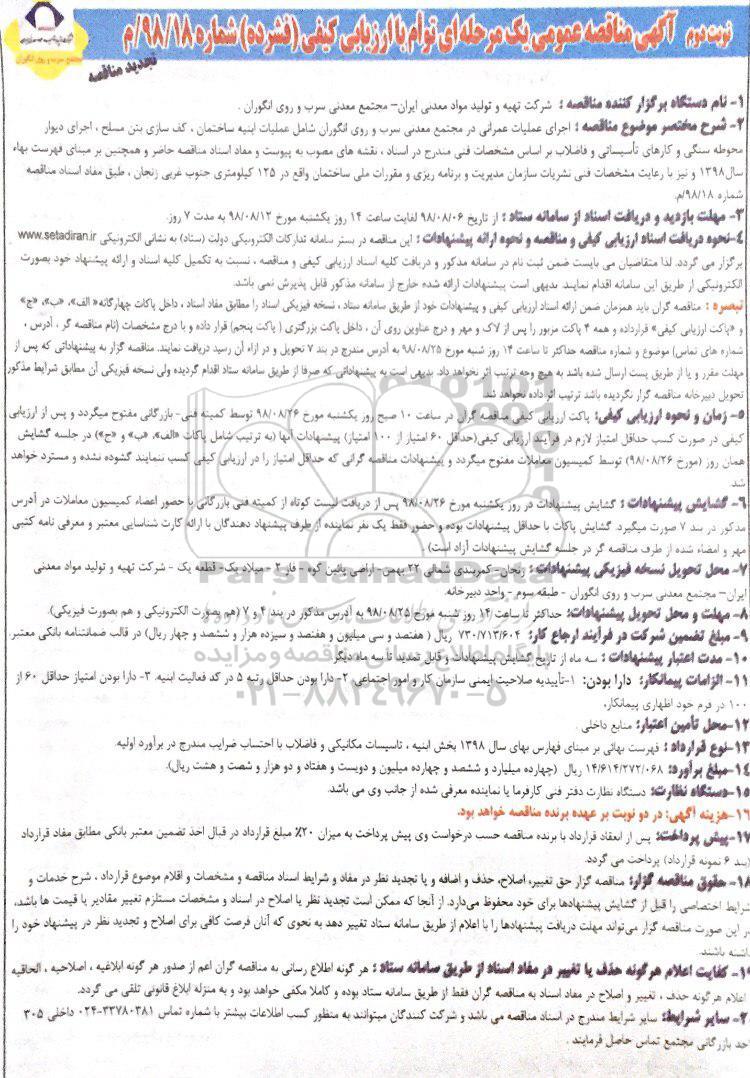 نوبت دوم آگهی مناقصه عمومی یک مرحله ای توأم با ارزیابی کیفی (فشرده) شماره ۹۸/۱۸/م
تجدید مناقصه
۱- نام دستگاه برگزار کننده مناقصه : شرکت تهیه و تولید مواد معدنی ایران- مجتمع معدنی سرب و روی انگوران .
۲- شرح مختصر موضوع مناقصه : اجرای عملیات عمرانی در مجتمع معدنی سرب و روی انگوران شامل عملیات ابنیه ساختمان ، کف سازی بتن مسلح ، اجرای دیوار
محوطه سنگی و کارهای تأسیساتی و فاضلاب بر اساس مشخصات فنی مندرج در اسناد ، نقشه های مصوب به پیوست و مفاد اسناد مناقصه حاضر و همچنین بر مبنای فهرست بهاء
سال۱۳۹۸ و نیز با رعایت مشخصات فنی نشریات سازمان مدیریت و برنامه ریزی و مقررات ملی ساختمان واقع در ۱۲۵ کیلومتری جنوب غربی زنجان ، طبق مفاد اسناد مناقصه
شماره ۹۸/۱۸/م.
۳- مهلت بازدید و دریافت اسناد از سامانه ستاد : از تاریخ ۹۸/۰۸/۰۶ لغایت ساعت ۱۴ روز یکشنبه مورخ ۹۸/۰۸/۱۲ به مدت ۷ روز.
۴-نحوه دریافت اسناد ارزیابی کیفی و مناقصه و نحوه ارائه پیشنهادات : این مناقصه در بستر سامانه تدارکات الکترونیکی دولت (ستاد) به نشانی الکترونیکی www.setadiran.ir
برگزار می گردد. لذا متقاضیان می بایست ضمن ثبت نام در سامانه مذکور و دریافت کلیه اسناد ارزیابی کیفی و مناقصه ، نسبت به تکمیل کلیه اسناد و ارائه پیشنهاد خود بصورت
الکترونیکی از طریق این سامانه اقدام نمایند. بدیهی است پیشنهادات ارائه شده خارج از سامانه مذکور قابل پذیرش نمی باشد.
تبصره : مناقصه گران باید همزمان ضمن ارائه اسناد ارزیابی کیفی و پیشنهادات خود از طریق سامانه ستاد ، نسخه فیزیکی اسناد را مطابق مفاد اسناد ، داخل پاکات چهارگانه« الف»، «ب»، «ج»
و «پاکت ارزیابی کیفی» قرارداده و همه ۴ پاکت مزبور را پس از لاک و مهر و درج عناوین روی آن ، داخل پاکت بزرگتری ( پاکت پنجم) قرار داده و با درج مشخصات (نام مناقصه گر ، آدرس ،
شماره های تماس) موضوع و شماره مناقصه حداکثر تا ساعت ۱۴ روز شنبه مورخ ۹۸/۰۸/۲۵ به آدرس مندرج در بند ۷ تحویل و در ازاء آن رسید دریافت نمایند. مناقصه گزار به پیشنهاداتی که پس از
مهلت مقرر و یا از طریق پست ارسال شده باشد به هیچ وجه ترتیب اثر نخواهد داد. بدیهی است به پیشنهاداتی که صرفا از طریق سامانه ستاد اقدام گردیده ولی نسخه فیزیکی آن مطابق شرایط مذکور
تحویل دبیرخانه مناقصه گزار نگردیده باشد ترتیب اثر داده نخواهد شد.
۵- زمان و نحوه ارزیابی کیفی: پاکت ارزیابی کیفی مناقصه گران در ساعت ۱۰ صبح روز یکشنبه مورخ ۹۸/۰۸/۲۶ توسط کمیته فنی- بازرگانی مفتوح میگردد و پس از ارزیابی
کیفی در صورت کسب حداقل امتیاز لازم در فرآیند ارزیابی کیفی(حداقل ۶۰ امتیاز از ۱۰۰ امتیاز) پیشنهادات آنها (به ترتیب شامل پاکات «الف»، «ب» و «ج») در جلسه گشایش
همان روز (مورخ ۹۸/۰۸/۲۶) توسط کمیسیون معاملات مفتوح میگردد و پیشنهادات مناقصه گرانی که حداقل امتیاز را در ارزیابی کیفی کسب ننمایند گشوده نشده و مسترد خواهد
شد.
۶- گشایش پیشنهادات : گشایش پیشنهادات در روز یکشنبه مورخ ۹۸/۰۸/۲۶ پس از دریافت لیست کوتاه از کمیته فنی بازرگانی با حضور اعضاء کمیسیون معاملات در آدرس
مذکور در بند ۷ صورت میگیرد. گشایش پاکات با حداقل پیشنهادات بوده و حضور فقط یک نفر نماینده از طرف پیشنهاد دهندگان با ارائه کارت شناسایی معتبر و معرفی نامه کتبی
مهر و امضاء شده از طرف مناقصه گر در جلسه گشایش پیشنهادات آزاد است)
۷- محل تحویل نسخه فیزیکی پیشنهادات : زنجان-کمربندی شمالی ۲۲ بهمن- اراضی پائین کوه - فاز ۲ - میلاد یک- قطعه یک - شرکت تهیه و تولید مواد معدنی
ایران- مجتمع معدنی سرب و روی انگوران - طبقه سوم - واحد دبیرخانه.
۸- مهلت و محل تحویل پیشنهادات: حداکثر تا ساعت ۱۴ روز شنبه مورخ ۹۸/۰۸/۲۵ به آدرس مذکور در بند ۴ و ۷ (هم بصورت الکترونیکی و هم بصورت فیزیکی).
۹- مبلغ تضمین شرکت در فرآیند ارجاع کار: ۷۳۰/۷۱۳/۶۰۴ ریال ( هفتصد و سی میلیون و هفتصد و سیزده هزار و ششصد و چهار ریال) در قالب ضمانتنامه بانکی معتبر.
۱۰- مدت اعتبار پیشنهادات : سه ماه از تاریخ گشایش پیشنهادات و قابل تمدید تا سه ماه دیگر
۱۱- الزامات پیمانکار: دارا بودن: ۱-تأییدیه صلاحیت ایمنی سازمان کار و امور اجتماعی ۲- دارا بودن حداقل رتبه ۵ در کد فعالیت ابنیه. ۳- دارا بودن امتیاز حداقل ۶۰ از
۱۰۰ در فرم خود اظهاری پیمانکار.
۱۲-محل تأمین اعتبار: منابع داخلی .
۱۳-نوع قرارداد : فهرست بهائی بر مبنای فهارس بهای سال ۱۳۹۸ بخش ابنیه ، تاسیسات مکانیکی و فاضلاب با احتساب ضرایب مندرج در برآورد اولیه.
۱۴-مبلغ برآورد: ۱۴/۶۱۴/۲۷۲/۰۶۸ ریال (چهارده میلیارد و ششصد و چهارده میلیون و دویست و هفتاد و دو هزار و شصت و هشت ریال).
۱۵-دستگاه نظارت: دستگاه نظارت دفتر فنی کارفرما یا نماینده معرفی شده از جانب وی می باشد.
۱۶-هزینه آگهی: در دو نوبت بر عهده برنده مناقصه خواهد بود.
۱۷-پیش پرداخت: پس از انعقاد قرارداد با برنده مناقصه حسب درخواست وی پیش پرداخت به میزان ۲۰٪ مبلغ قرارداد در قبال اخذ تضمین معتبر بانکی مطابق مفاد قرارداد
(بند ۶ نمونه قرارداد) پرداخت می گردد.
۱۸- حقوق مناقصه گزار: مناقصه گزار حق تغییر، اصلاح، حذف و اضافه و یا تجدید نظر در مفاد و شرایط اسناد مناقصه و مشخصات و اقلام موضوع قرارداد ، شرح خدمات و
شرایط اختصاصی را قبل از گشایش پیشنهادها برای خود محفوظ می‌دارد. از آنجا که ممکن است تجدید نظر یا اصلاح در اسناد و مشخصات مستلزم تغییر مقادیر یا قیمت ها باشد،
در این صورت مناقصه گزار می‌تواند مهلت دریافت پیشنهادها را با اعلام از طریق سامانه ستاد تغییر دهد به نحوی که آنان فرصت کافی برای اصلاح و تجدید نظر در پیشنهاد خود را
اشته باشند.
۱- کفایت اعلام هرگونه حذف یا تغییر در مفاد اسناد از طریق سامانه ستاد : هر گونه اطلاع رسانی به مناقصه گران اعم از صدور هر گونه ابلاغیه ، اصلاحیه ، الحاقیه
اعلام هرگونه حذف ، تغییر و اصلاح در مفاد اسناد به مناقصه گران فقط از طریق سامانه ستاد بوده و کاملا مکفی خواهد بود و به منزله ابلاغ قانونی تلقی می گردد.
۲- سایر شرایط: سایر شرایط مندرج در اسناد مناقصه می باشد و شرکت کنندگان میتوانند به منظور کسب اطلاعات بیشتر با شماره تماس ۳۳۷۸۰۳۸۱-۰۲۴ داخلی ۳۰۵
احد بازرگانی مجتمع تماس حاصل فرمایند .
ParsNamadData
پایگاه اطلاع رسانی مناقصه و مزایده
۰۲۱-۸۸۳۴۹۶۷۰-۵